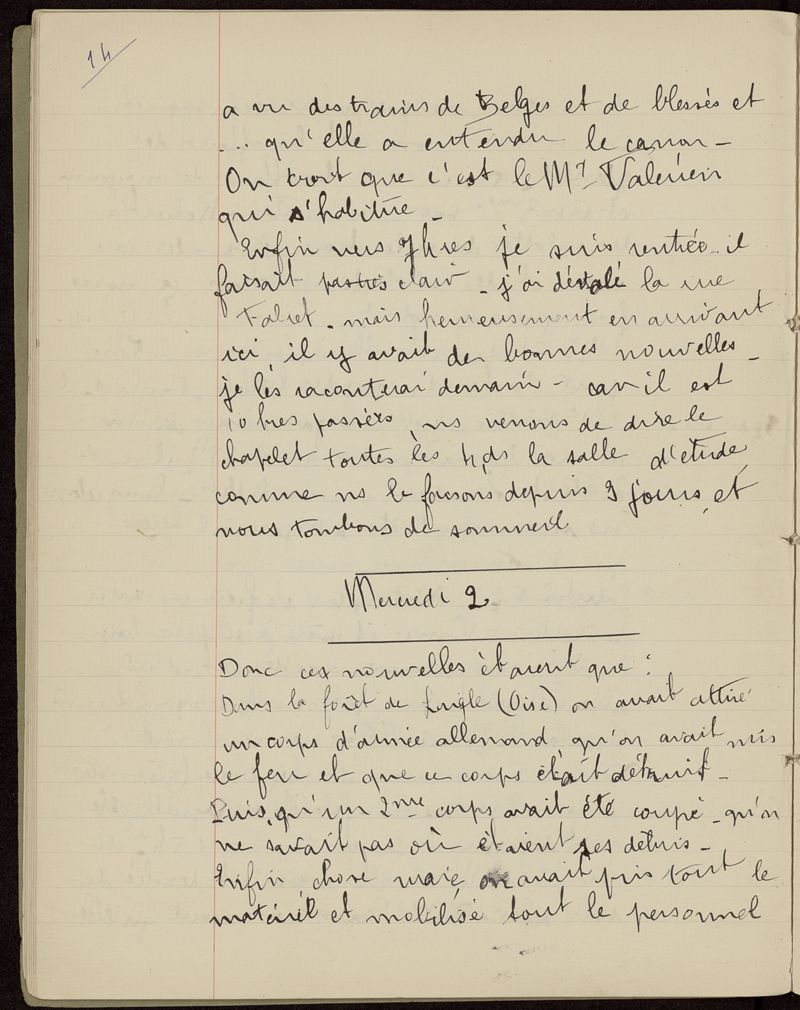 14
a vu des trains de Belges et de blessés et
... qu'elle a entendu le canon -
On croit que c'est le Mt Valérien
qui s'habitue -
Enfin vers 7 hres je suis rentrée - il
faisait pas très clair - j'ai dévalé la rue
Falret. mais heureusement en arrivant
ici, il y avait de bonnes nouvelles -
je les raconterai demain - car il est
10 hres passées, ns venons de dire le
chapelet toutes les 4, ds la salle d'étude,
comme ns le faisons depuis 9 jours, et
nous tombons de sommeil
Mercredi 2.
Donc ces nouvelles étaient que :
Dans la forêt de (Oise) on avait attiré
un corps d'armée allemand, qu'on avait mis
le feu et que ce corps était détruit -
Puis, qu'un 2me corps avait été coupé - qu'on
ne savait pas où étaient ses débris -
Enfin, chose vraie, on avait pris tout le
matériel et mobilisé tout le personnel